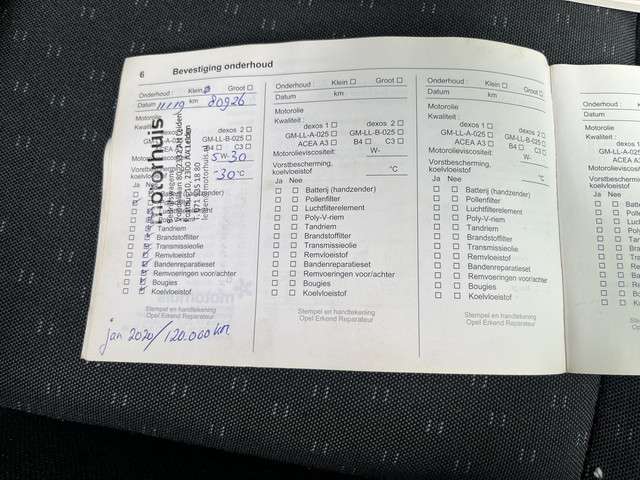 6 Bevestiging onderhoud
Onderhoud : Klein Groot
Datum 11.1.19 km 80926
Motorolie
Kwaliteit
dexos 2
GM-LL-A-025 GM-LL-B-025
ACEA A3 B4 C3
5W-30
-30 °C
Ja Nee
motorhuis
Tandriem
Brandstoffilter
Transmissieolie
Remvloeistof
Bandenreparatieset
Remvoeringen voor/achter
Bougies
Koelvloeistof
Stempel en handtekening
Opel Erkend Reparateur
jan 2020/120.000 km
Onderhoud : Klein Groot
Datum km
Motorolie
Kwaliteit :
dexos 1 dexos 2
GM-LL-A-025 GM-LL-B-025
ACEA A3 B4 C3
Motorolieviscositeit: W-
Vorstbescherming,
koelvloeistof °C
Ja Nee
Batterij (handzender)
Pollenfilter
Luchtfilterelement
Poly-V-riem
Tandriem
Brandstoffilter
Transmissieolie
Remvloeistof
Bandenreparatieset
Remvoeringen voor/achter
Bougies
Koelvloeistof
Stempel en handtekening
Opel Erkend Reparateur
Onderhoud : Klein Groot
Datum km
Motorolie
Kwaliteit :
dexos 1 dexos 2
GM-LL-A-025 GM-LL-B-025
ACEA A3 B4 C3
Motorolieviscositeit: W-
Vorstbescherming,
koelvloeistof °C
Ja Nee
Batterij (handzender)
Pollenfilter
Luchtfilterelement
Poly-V-riem
Tandriem
Brandstoffilter
Transmissieolie
Remvloeistof
Bandenreparatieset
Remvoeringen voor/achter
Bougies
Koelvloeistof
Stempel en handtekening
Opel Erkend Reparateur
Onderhoud :
Datum
Motorolie
Kwaliteit :
GM-LL-A
ACE
Motorolievisc
Vorstbescherm
koelvloeistof
Ja Nee